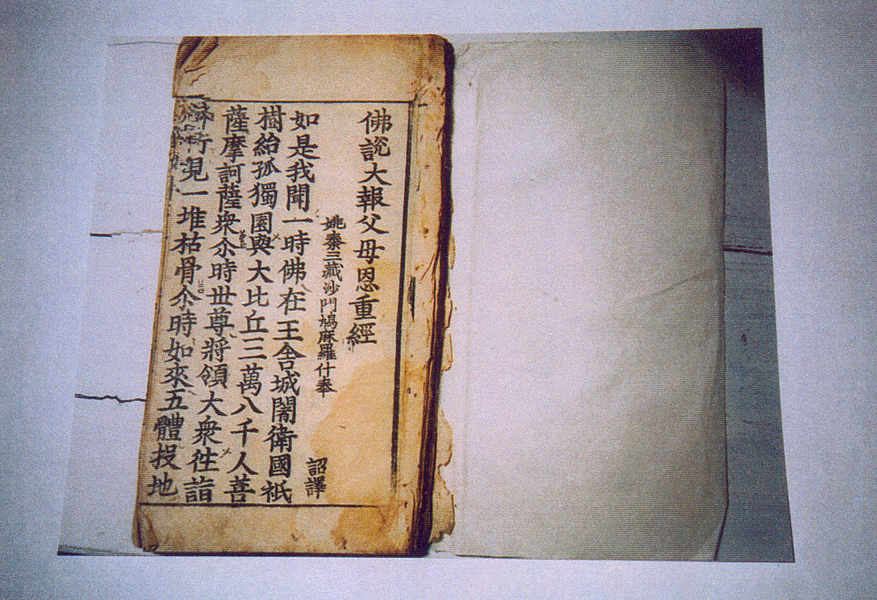 佛說大報父母恩重經
姚秦三藏沙門鳩麻羅什奉 詔譯
如是我聞一時佛在王舍城闍衛國祇
樹給孤獨園與大比丘三萬八千人菩
薩摩訶薩衆尒時丗尊將領大衆徃詣
行見一堆枯骨尒時如來五體投地